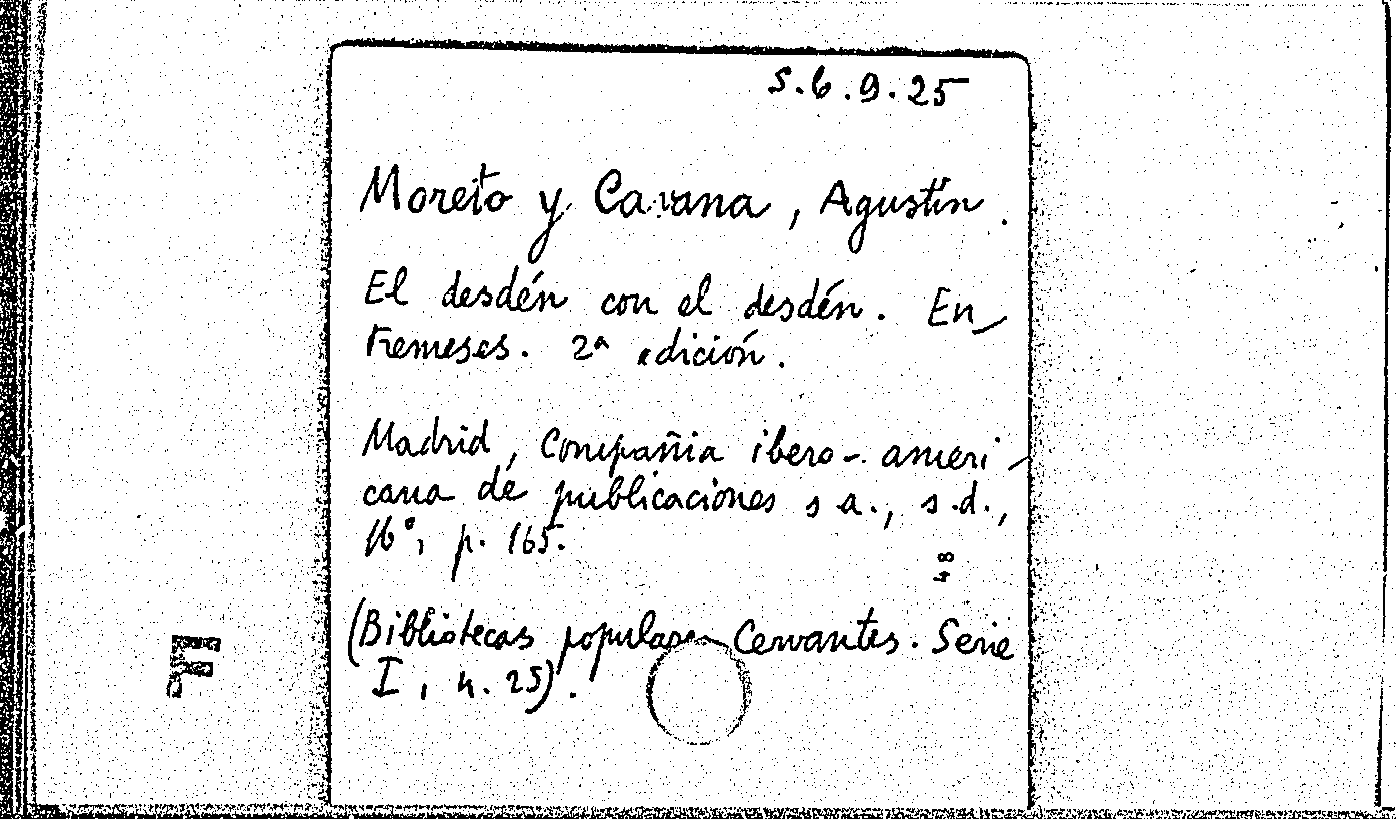 S.6.9.25
Moreto y Cavana, Agustín.
El desdén con el desdén. En-
tremeses. 2ª edición.
Madrid, Compañia ibero-ameri-
cana de publicaciones s a., s.d.,
16°, p. 165.
48
(Bibliotecas populares Cervantes. Serie
I, n. 25).
F